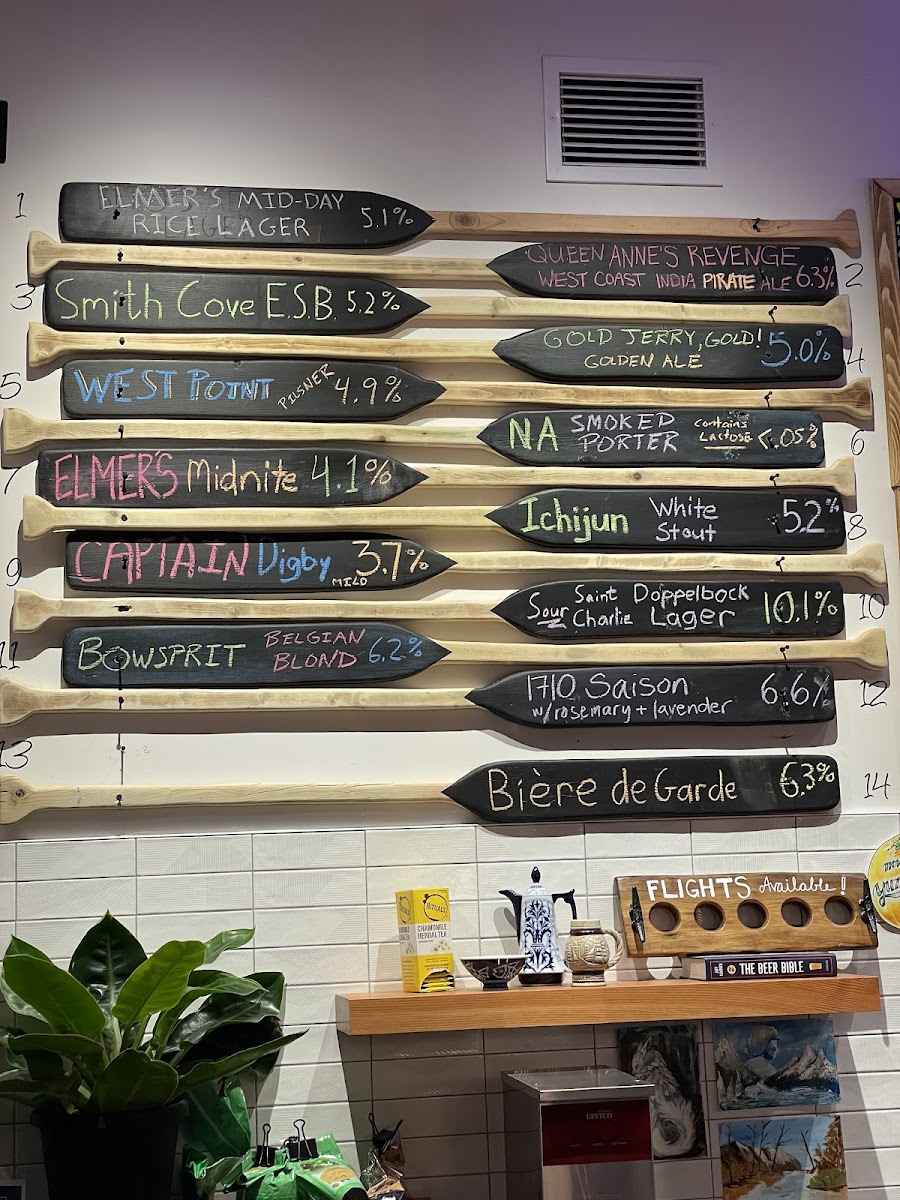 1
ELMER'S MID-DAY
RICE LAGER 5.1%
QUEEN ANNE'S REVENGE
WEST COAST INDIA PIRATE ALE 6.3%
2
3
Smith Cove E.S.B. 5.2%
GOLD JERRY, GOLD!
GOLDEN ALE 5.0%
4
5
WEST POINT PILSNER 4.9%
NA SMOKED PORTER Contains Lactose <.05%
6
7
ELMER'S Midnite 4.1%
Ichijun White Stout 5.2%
8
9
CAPTAIN Digby MILD 3.7%
Sour Saint Charlie Doppelbock Lager 10.1%
10
11
BOWSPRIT BELGIAN BLOND 6.2%
1710 Saison
w/rosemary + lavender 6.6%
12
13
Bière de Garde 6.3%
14
FLIGHTS Available!
RITUALS
CHAMOMILE
HERBAL TEA
THE BEER BIBLE
yuzu